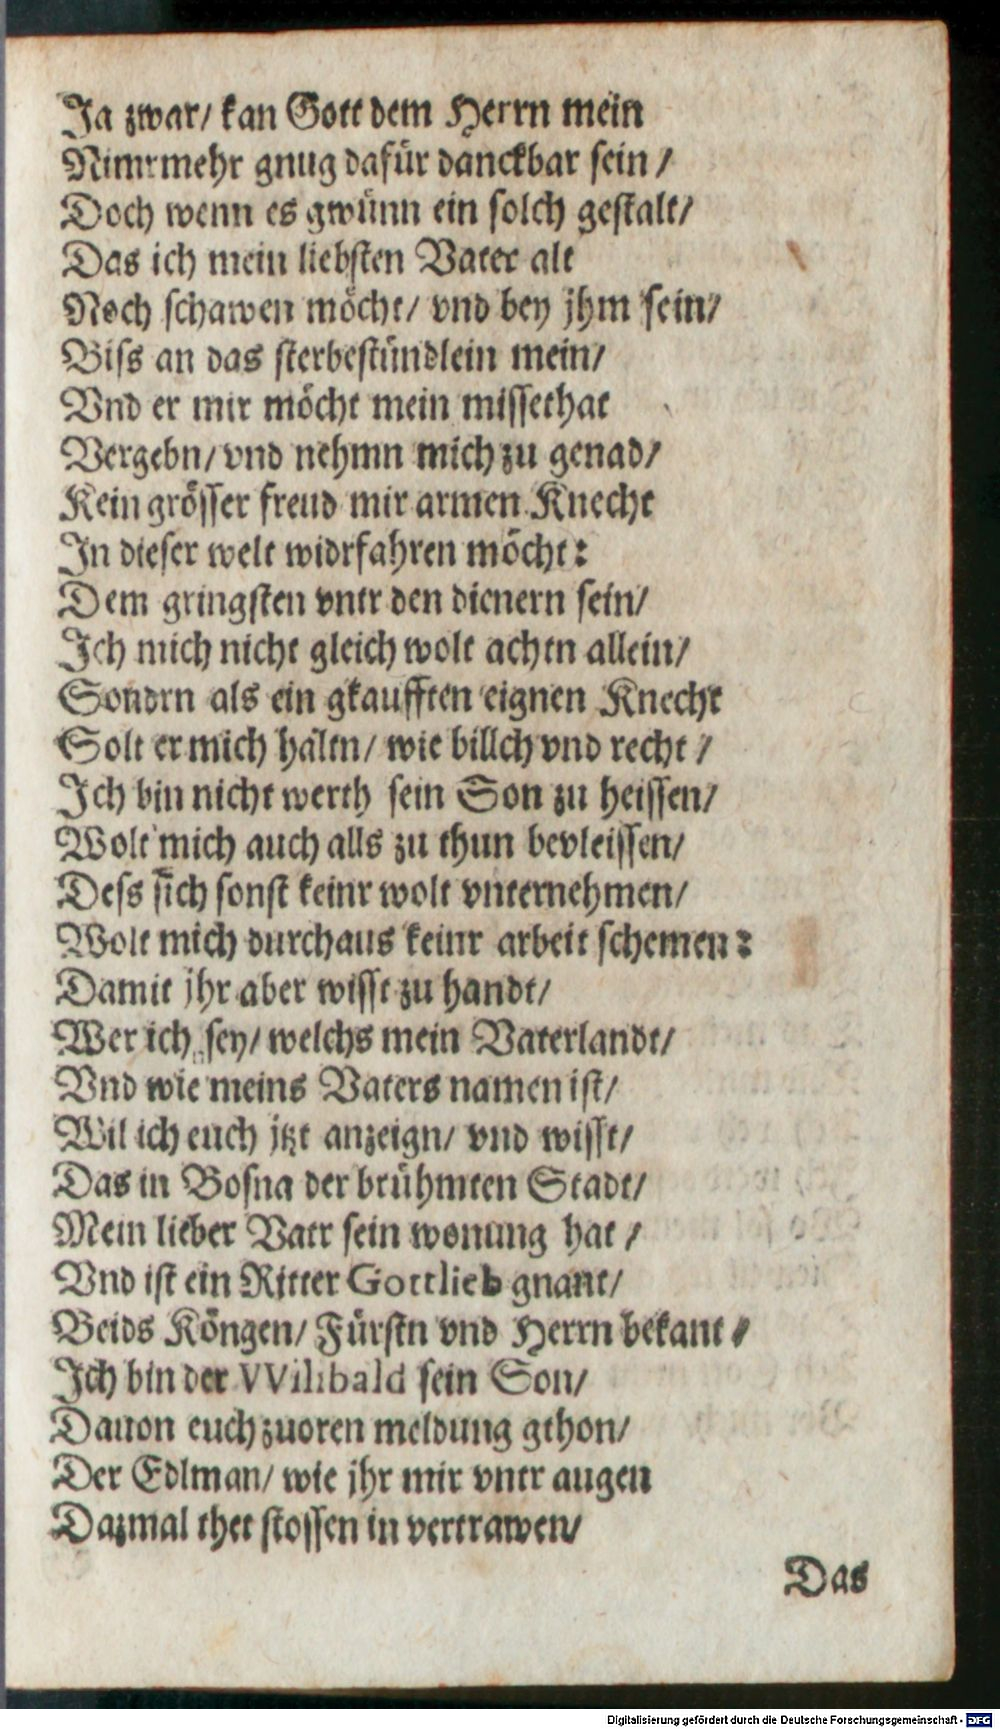 Ja zwar/ kan Gott dem Herrn mein
Nimrmehr gnug dafür danckbar sein /
Doch wenn es gwünn ein solch gestalt/
Das ich mein liebsten Vater alt
Noch schawen möcht/ vnd bey jhm sein/
Biss an das sterbestündlein mein/
Vnd er mir möcht mein missethat
Vergebn/ vnd nehmn mich zu genad/
Kein grösser freud mir armen Knecht
In dieser welt widrfahren möcht:
Dem gringsten vntr den dienern sein/
Ich mich nicht gleich wolt achtn allein/
Sondrn als ein gkaufften eignen Knecht
Solt er mich haltn/ wie billch vnd recht /
Ich bin nicht werth sein Son zu heissen/
Wolt mich auch alls zu thun bevleissen/
Dess sich sonst keinr wolt vnternehmen/
Wolt mich durchaus keinr arbeit schemen:
Damit jhr aber wisst zu handt/
Wer ich sey/ welchs mein Vaterlandt/
Vnd wie meins Vaters namen ist/
Wil ich euch jtzt anzeign/ vnd wisst/
Das in Bosna der brühmten Stadt/
Mein lieber Vatr sein wonung hat /
Vnd ist ein Ritter Gottlieb gnant/
Beids Köngen/ Fürstn vnd Herrn bekant /
Ich bin der VVilibald sein Son/
Dauon euch zuoren meldung gthon/
Der Edlman/ wie jhr mir vntr augen
Dazmal thet stossen in vertrawen/
Das
Digitalisierung gefördert durch die Deutsche Forschungsgemeinschaft - DFG